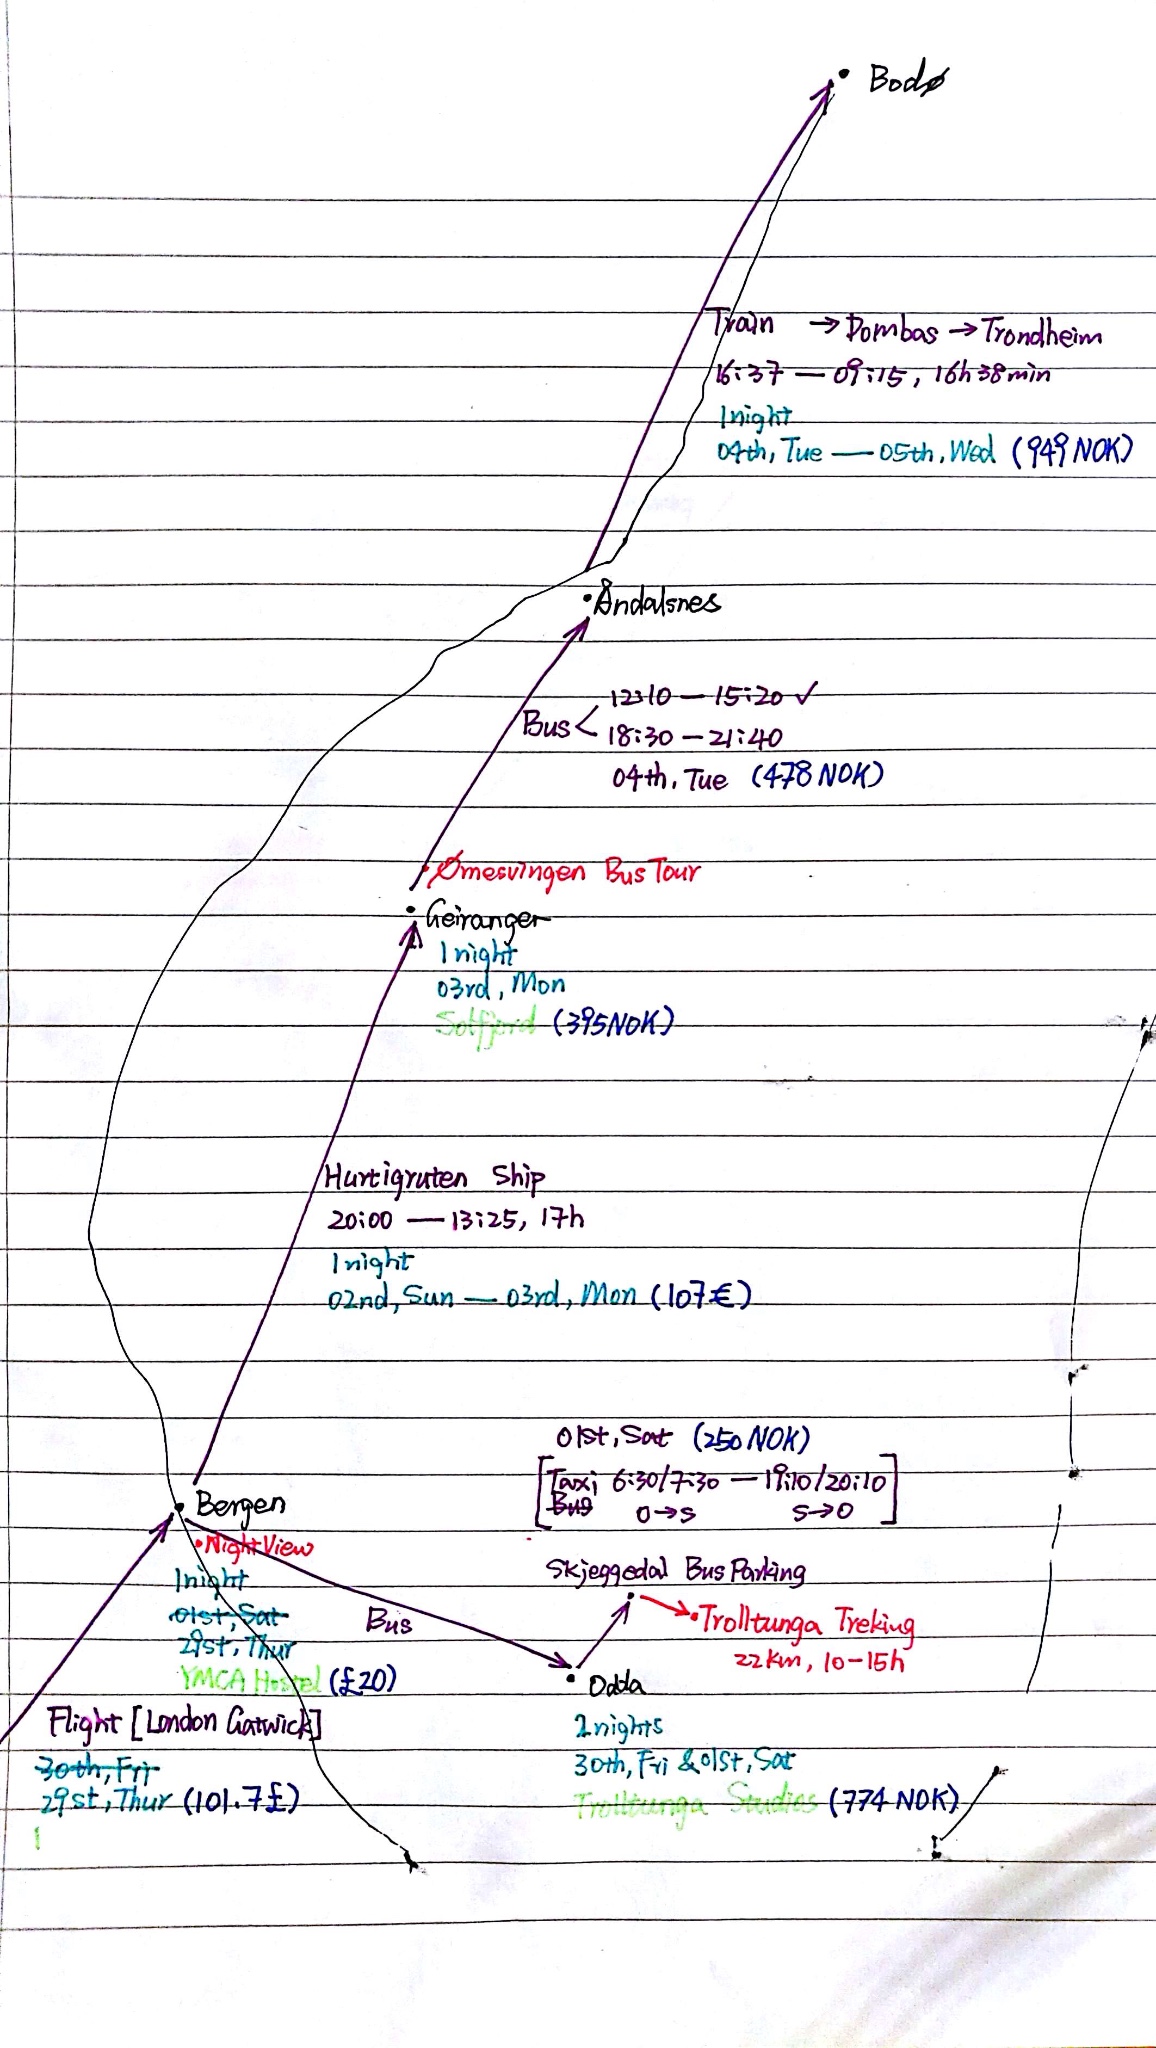 Bodø
Train → Dombas → Trondheim
16:37 — 09:15, 16h 38min
1night
04th, Tue — 05th, Wed (949 NOK)
Åndalsnes
12:10 — 15:20 ✓
Bus <
18:30 — 21:40
04th, Tue (478 NOK)
Ømesvingen Bus Tour
Geiranger
1 night
03rd, Mon
Solfjord (395NOK)
Hurtigruten Ship
20:00 — 13:25, 17h
1 night
02nd, Sun — 03rd, Mon (107€)
01st, Sat (250 NOK)
[Taxi 6:30/7:30 — 19:10/20:10]
Bus O→S S→O
Bergen
Night View
1night
01st, Sat
29st, Thur
YMCA Hostel (£20)
Bus
Skjeggedal Bus Parking
Trolltunga Treking
22 km, 10-15h
Odda
2nights
30th, Fri & 01st, Sat
Trolltunga Studios (774 NOK)
Flight [London Gatwick]
30th, Fri
29st, Thur (101.7£)